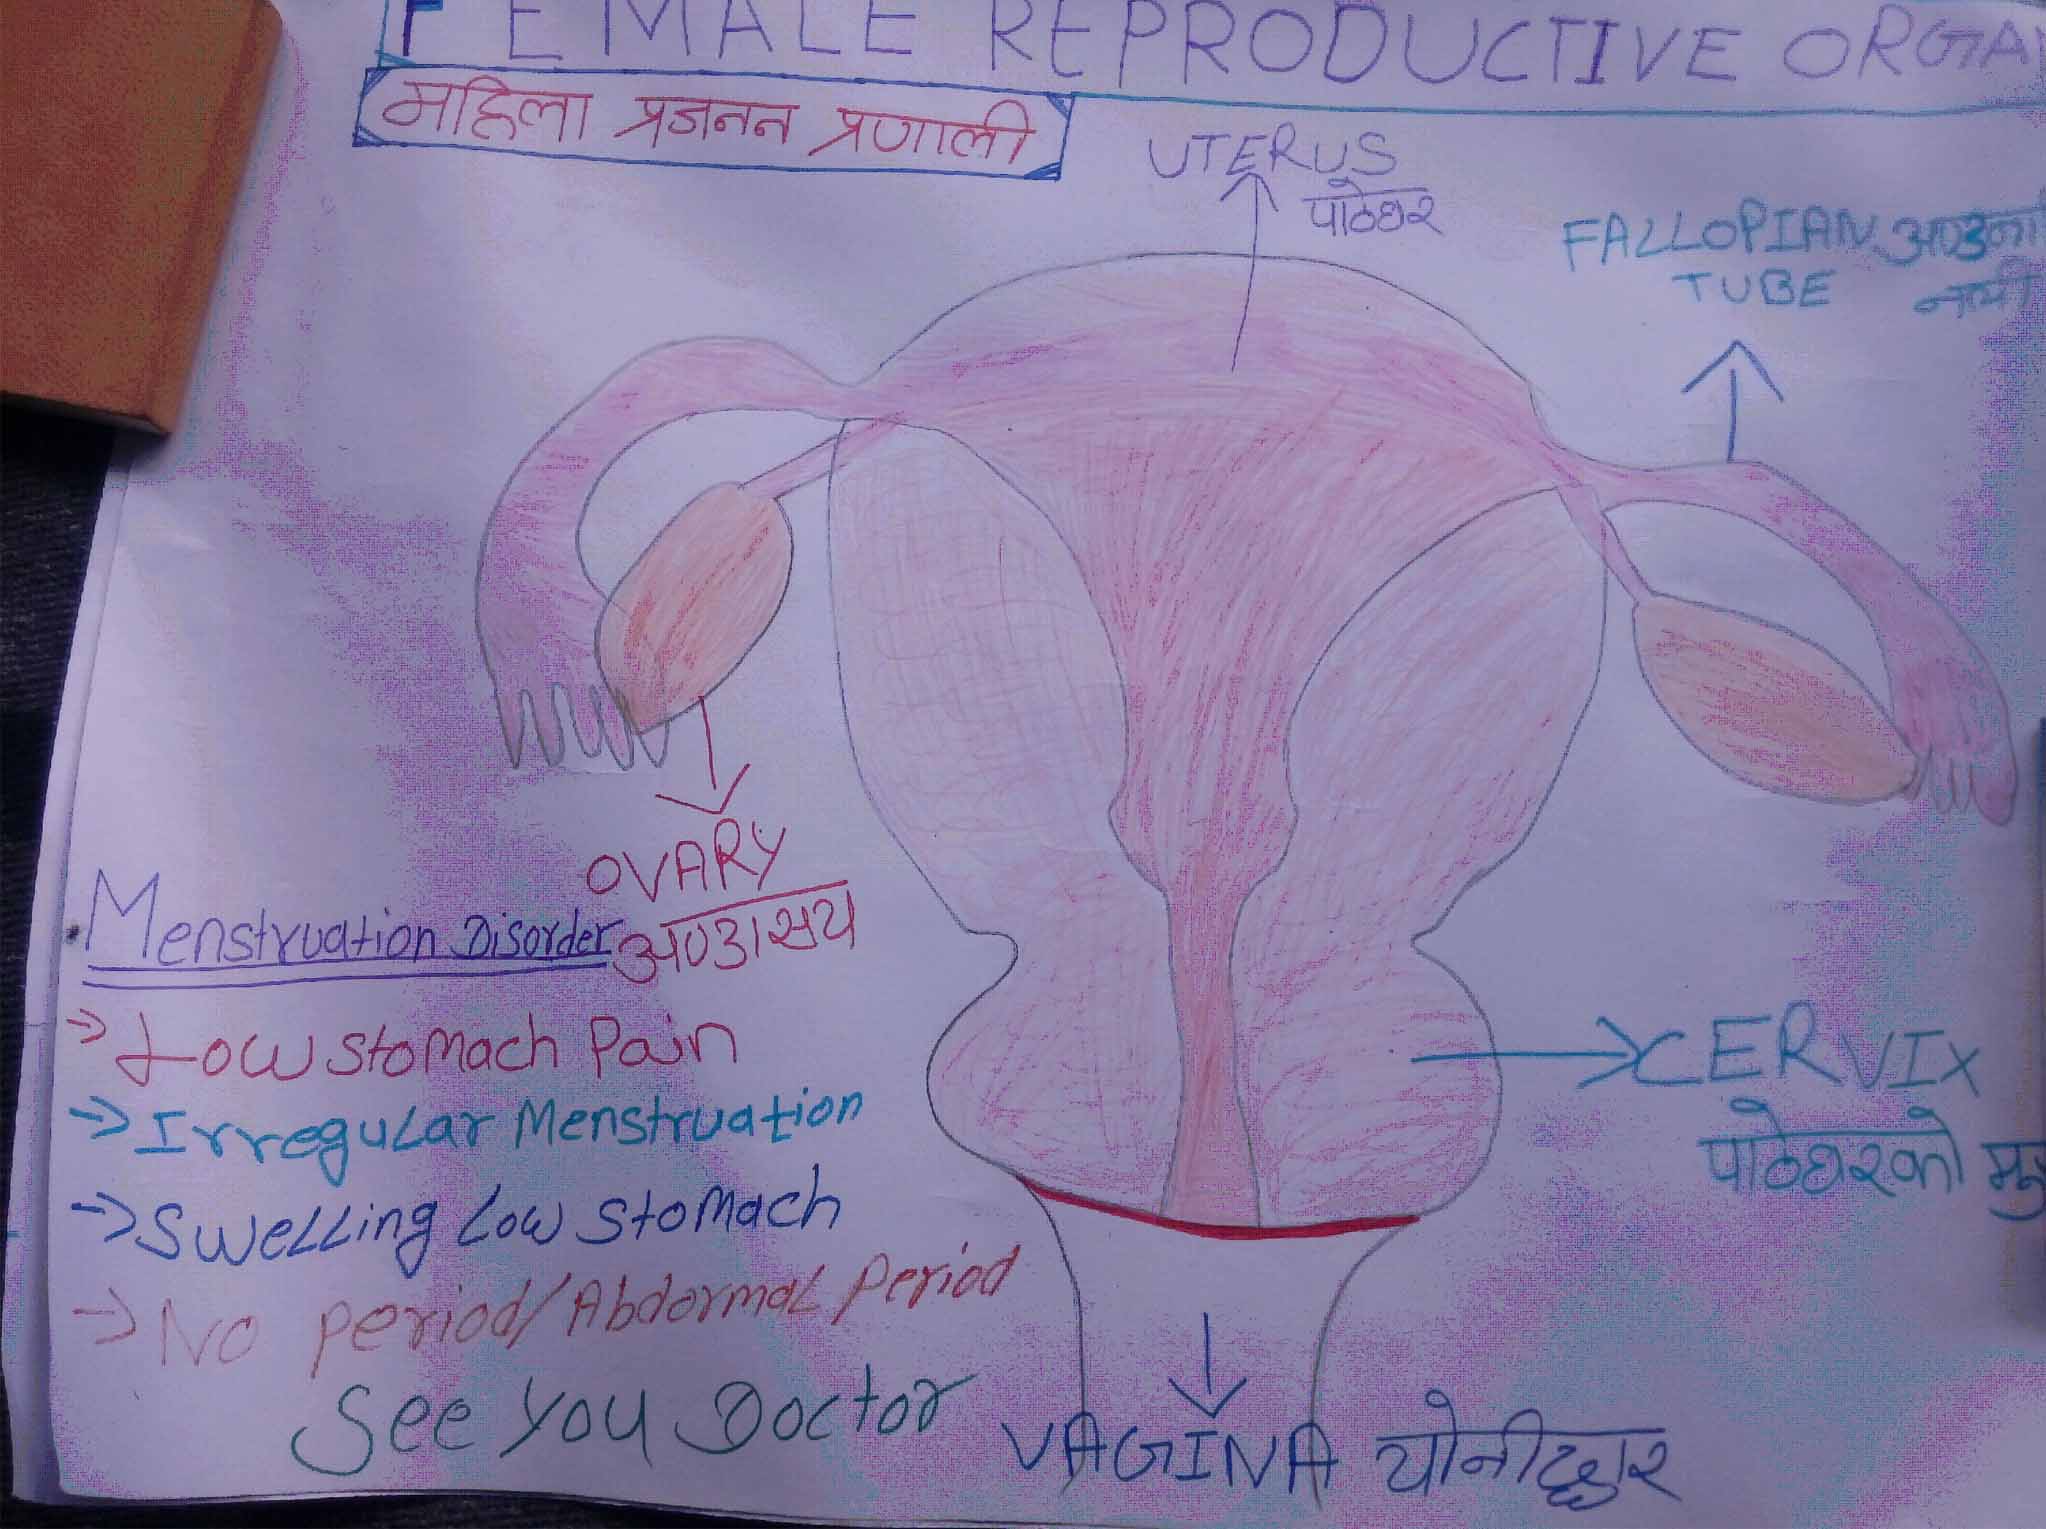 FEMALE REPRODUCTIVE ORGA
महिला प्रजनन प्रणाली
UTERUS
पाठेघर
FALLOPIAN
TUBE
OVARY
अण्डासय
Menstruation Disorder
→ Low stomach Pain
→ Irregular Menstruation
→ Swelling Low stomach
→ No period/Abdormal Period
See You Doctor
CERVIX
पाठेघरको
VAGINA योनीद्धार